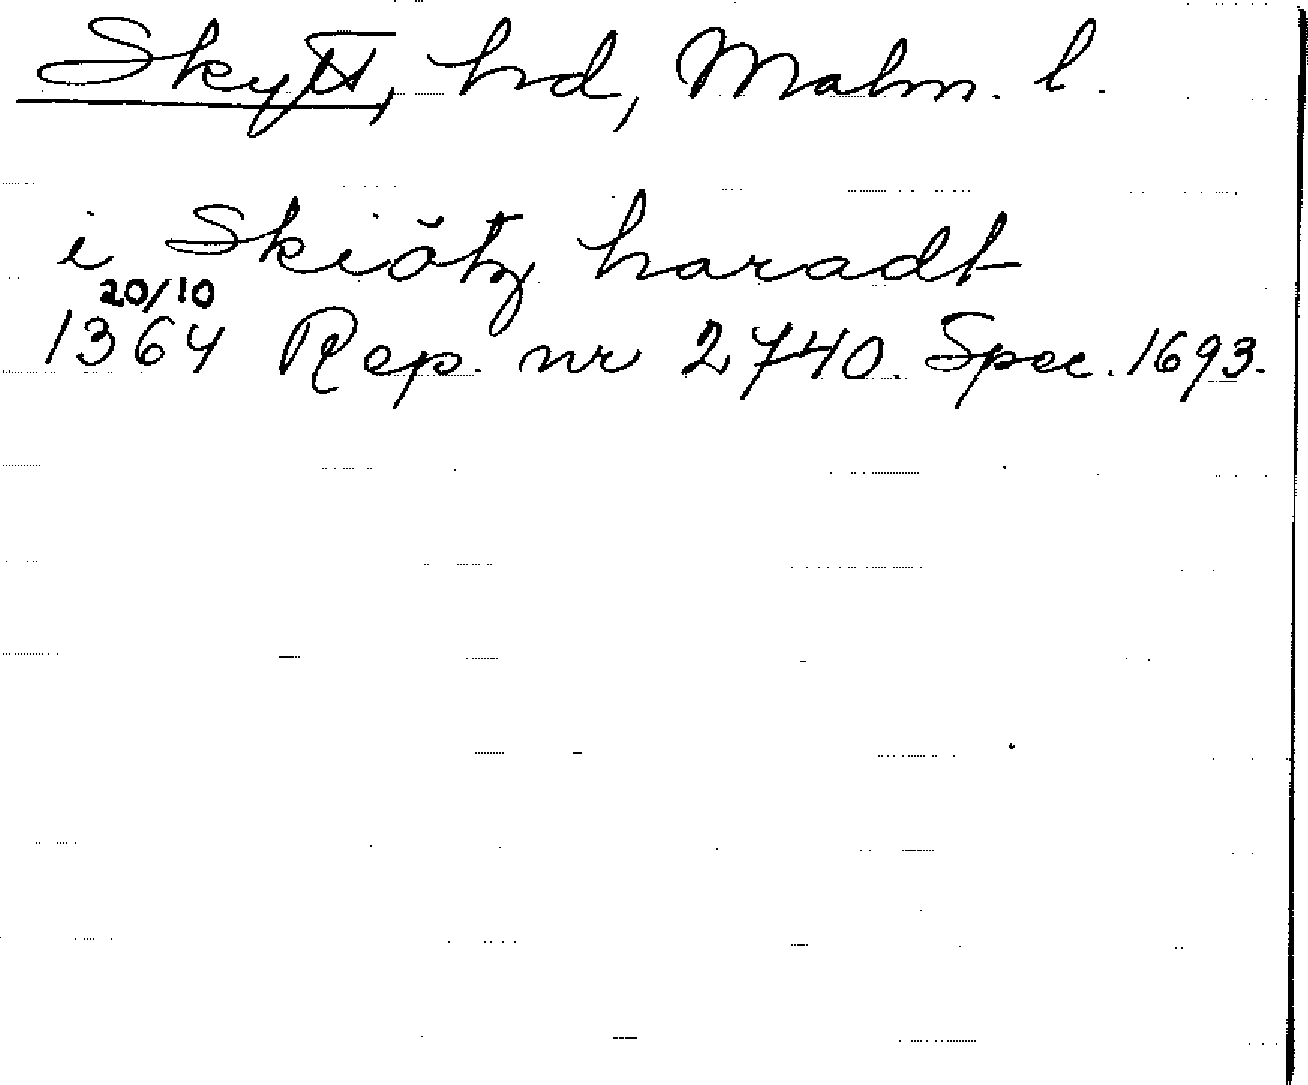 Skytt, hd, Malm. l.
i Skiötz haradt
20/10
1364 Rep. nr 2740. Spec. 1693.